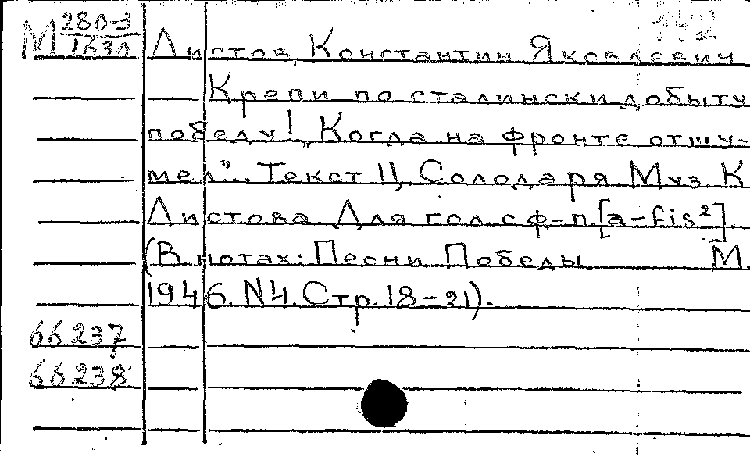 М 280-3
1631
Листов, Константин Яковлевич
Крепи по сталински добытую
победу! „Когда на фронте отшу-
мел". Текст Ц. Солодаря Муз. К.
Листова. Для гол. с ф-п. [a-fis²].
(В нотах: Песни Победы М.
1946. N4. Стр. 18-21).
66237
66238